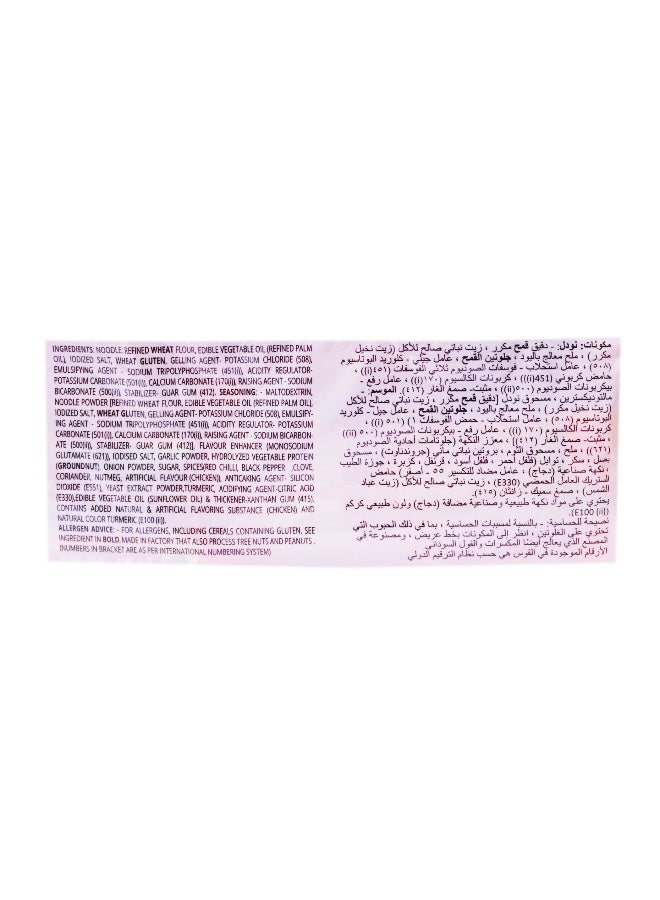 INGREDIENTS: NOODLE: REFINED WHEAT FLOUR, EDIBLE VEGETABLE OIL (REFINED PALM
OIL), IODIZED SALT, WHEAT GLUTEN, GELLING AGENT- POTASSIUM CHLORIDE (508),
EMULSIFYING AGENT - SODIUM TRIPOLYPHOSPHATE (451(i)), ACIDITY REGULATOR-
POTASSIUM CARBONATE (501(i)), CALCIUM CARBONATE (170(i)), RAISING AGENT - SODIUM
BICARBONATE (500(ii)), STABILIZER- GUAR GUM (412). SEASONING: - MALTODEXTRIN,
NOODLE POWDER [REFINED WHEAT FLOUR, EDIBLE VEGETABLE OIL (REFINED PALM OIL),
IODIZED SALT, WHEAT GLUTEN, GELLING AGENT- POTASSIUM CHLORIDE (508), EMULSIFY-
ING AGENT - SODIUM TRIPOLYPHOSPHATE (451(i)), ACIDITY REGULATOR- POTASSIUM
CARBONATE (501(i)), CALCIUM CARBONATE (170(i)), RAISING AGENT - SODIUM BICARBON-
ATE (500(ii)), STABILIZER- GUAR GUM (412)], FLAVOUR ENHANCER (MONOSODIUM
GLUTAMATE (621)), IODISED SALT, GARLIC POWDER, HYDROLYZED VEGETABLE PROTEIN
(GROUNDNUT), ONION POWDER, SUGAR, SPICES(RED CHILLI, BLACK PEPPER ,CLOVE,
CORIANDER, NUTMEG, ARTIFICIAL FLAVOUR (CHICKEN)), ANTICAKING AGENT- SILICON
DIOXIDE (E551), YEAST EXTRACT POWDER,TURMERIC, ACIDIFYING AGENT-CITRIC ACID
(E330),EDIBLE VEGETABLE OIL (SUNFLOWER OIL) & THICKENER-XANTHAN GUM (415).
CONTAINS ADDED NATURAL & ARTIFICIAL FLAVORING SUBSTANCE (CHICKEN) AND
NATURAL COLOR TURMERIC (E100 (ii)).
ALLERGEN ADVICE: - FOR ALLERGENS, INCLUDING CEREALS CONTAINING GLUTEN, SEE
INGREDIENT IN BOLD. MADE IN FACTORY THAT ALSO PROCESS TREE NUTS AND PEANUTS .
(NUMBERS IN BRACKET ARE AS PER INTERNATIONAL NUMBERING SYSTEM)
مكونات: نودل: - دقيق قمح مكرر ، زيت نباتي صالح للأكل (زيت نخيل
مكرر) ، ملح معالج باليود ، جلوتين القمح ، عامل جيلي - كلوريد البوتاسيوم
(٥٠٨) ، عامل استحلاب - فوسفات الصوديوم ثلاثي الفوسفات (٤٥١(i)) ،
حامض كربوني (451(i)) ، كربونات الكالسيوم (١٧٠(i)) ، عامل رفع -
بيكربونات الصوديوم (٥٠٠(ii)) ، مثبت- صمغ الغار (٤١٢). الموسم: -
مالتوديكسترين ، مسحوق نودل [دقيق قمح مكرر ، زيت نباتي صالح للأكل
(زيت نخيل مكرر) ، ملح معالج باليود ، جلوتين القمح ، عامل جيل - كلوريد
البوتاسيوم (٥٠٨) ، عامل استحلاب - حمض الفوسفات (٥٠١ (i)) ،
كربونات الكالسيوم (١٧٠ (i)) ، عامل رفع - بيكربونات الصوديوم (٥٠٠ (ii))
، مثبت- صمغ الغار (٤١٢)] ، معزز النكهة (جلوتامات أحادية الصوديوم
(٦٢١)) ، ملح ، مسحوق الثوم ، بروتين نباتي مائي (جروندناوت) ، مسحوق
بصل ، سكر ، توابل (فلفل أحمر ، فلفل أسود ، قرنفل ، كزبرة ، جوزة الطيب
، نكهة صناعية (دجاج) ، عامل مضاد للتكسير ٥٥ - أصفر) حامض
الستريك العامل الحمضي (E330) ، زيت نباتي صالح للأكل (زيت عباد
الشمس) ، صمغ سميك - زانثان (٤١٥).
يحتوي على مواد نكهة طبيعية وصناعية مضافة (دجاج) ولون طبيعي كركم
(E100 (ii)).
نصيحة الحساسية: - بالنسبة لمسببات الحساسية ، بما في ذلك الحبوب التي
تحتوي على الغلوتين ، انظر إلى المكونات بخط عريض ، ومصنوعة في
المصنع الذي يعالج أيضًا المكسرات والفول السوداني
الأرقام الموجودة في القوس هي حسب نظام الترقيم الدولي